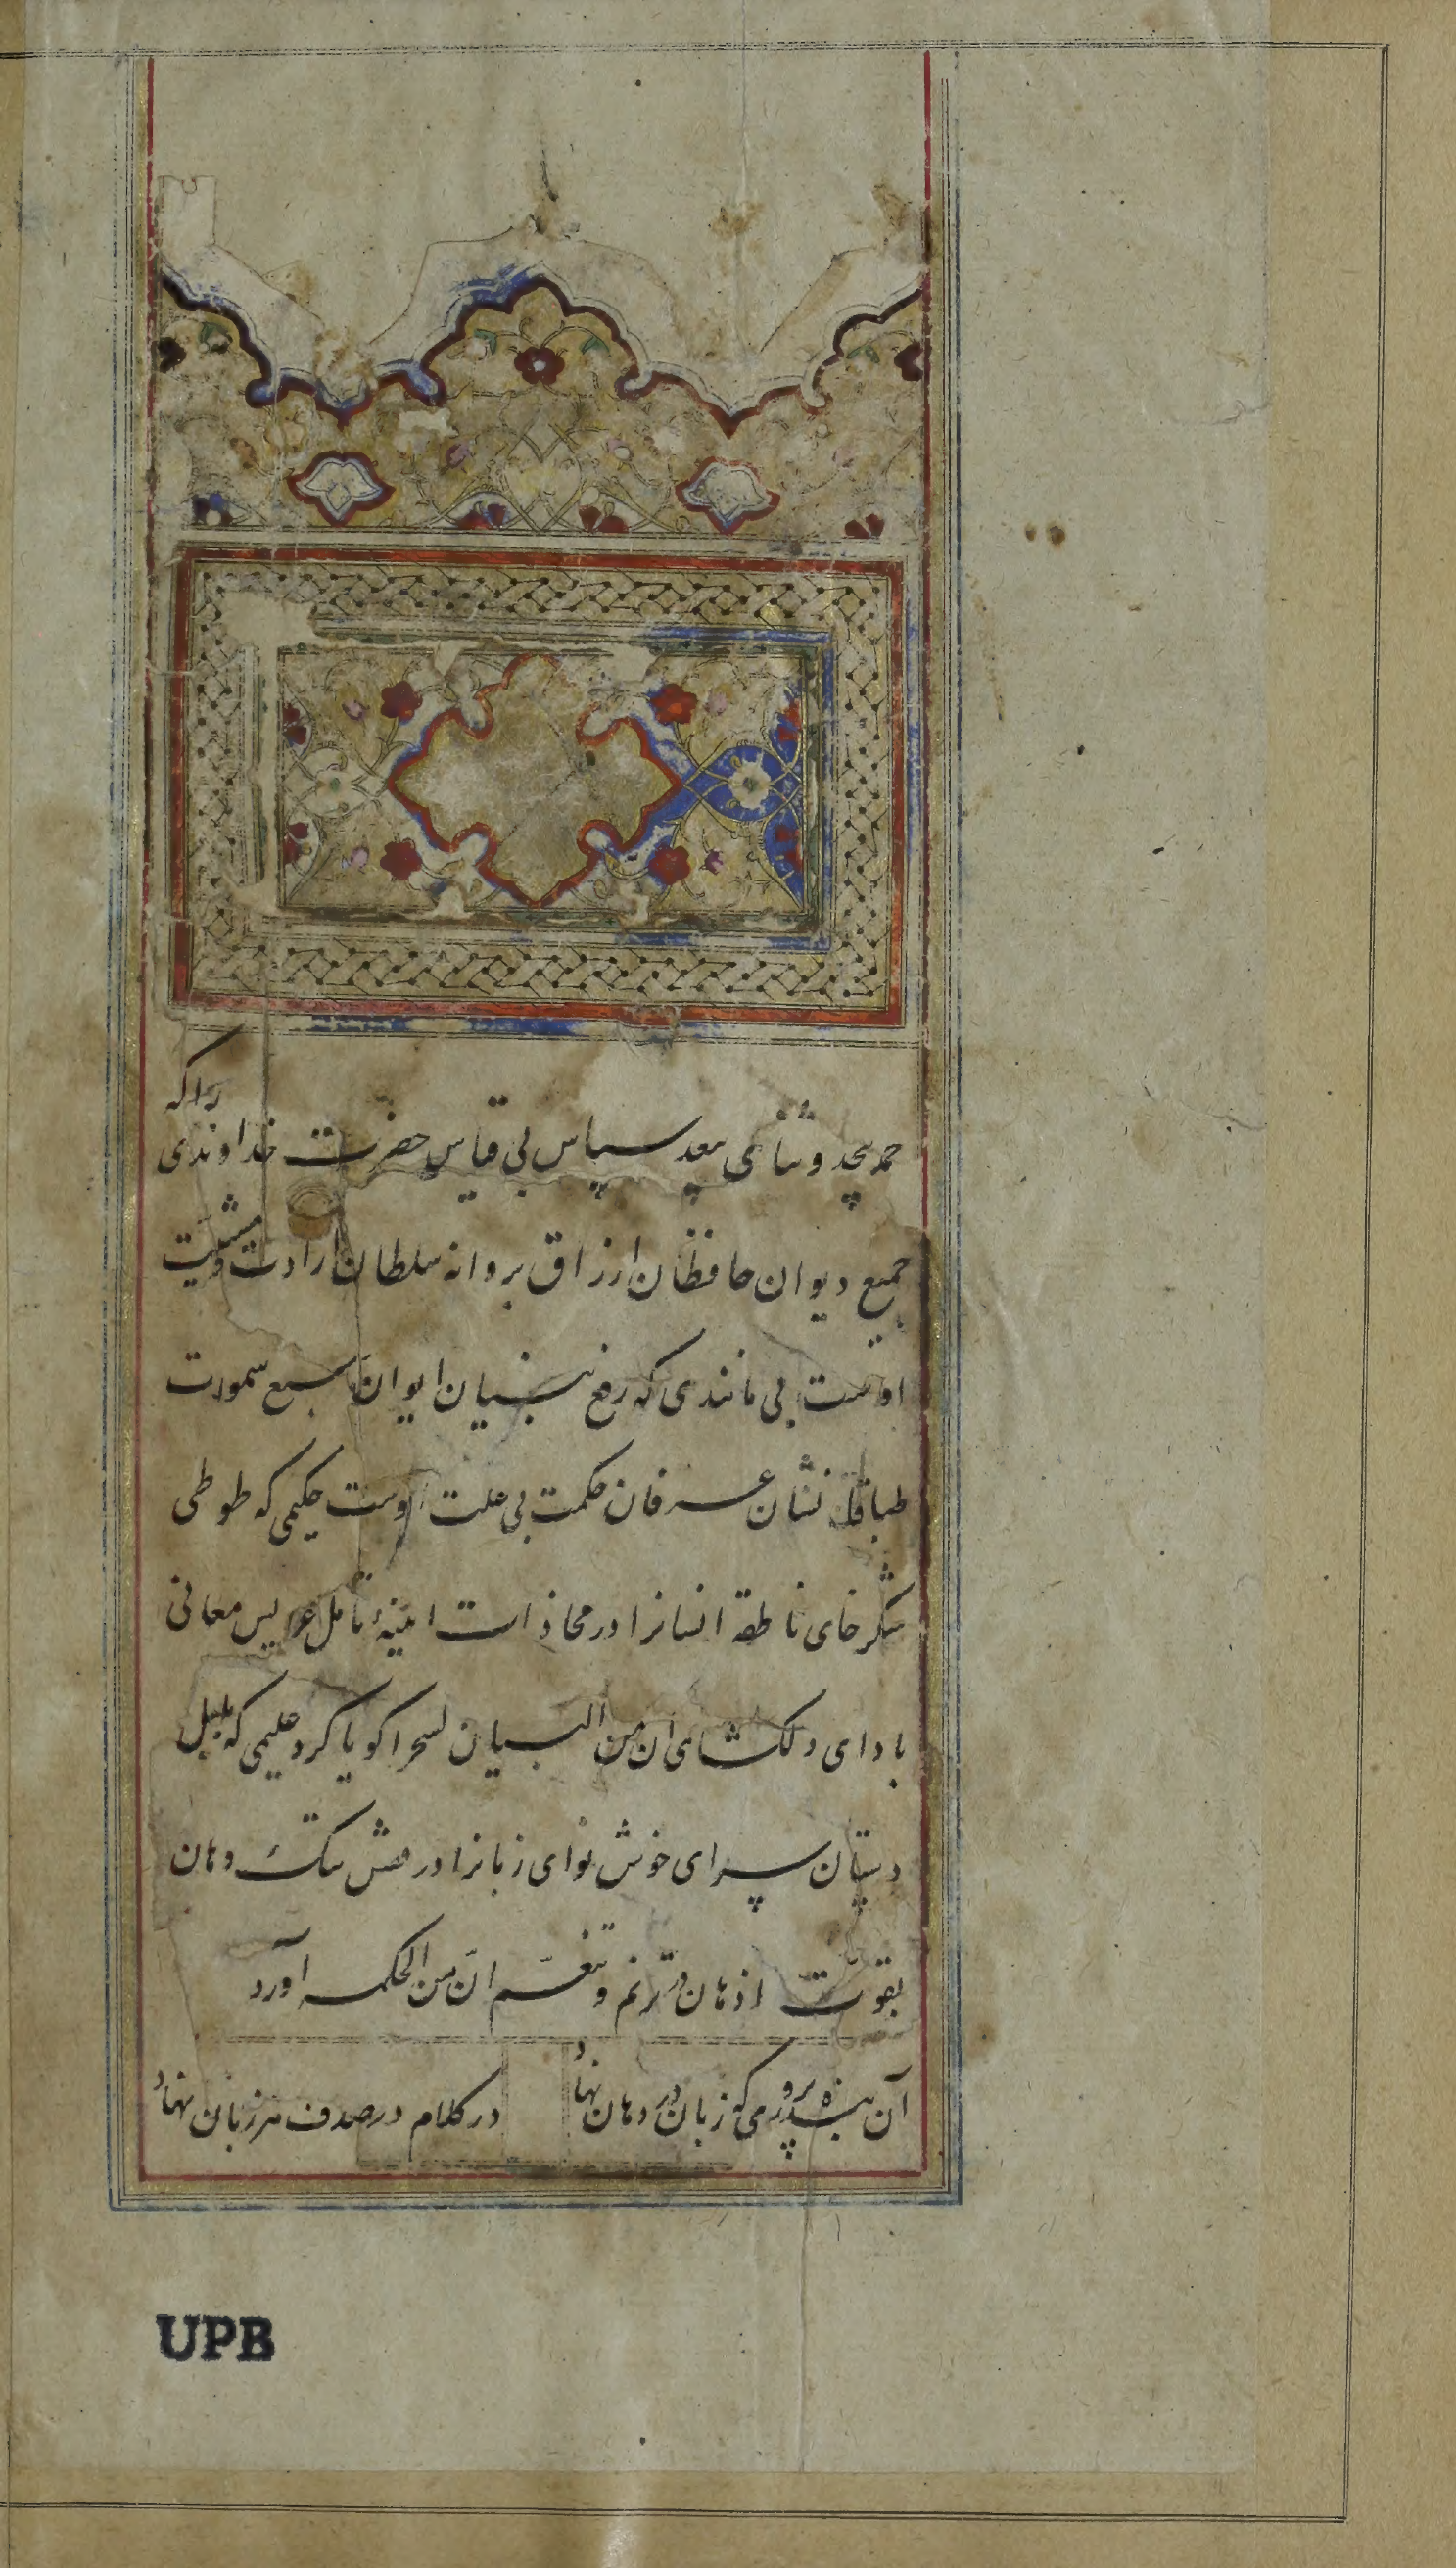 حمد بیحد و ثنای بیعد سپاس بی قیاس حضرت خداوندی را که
جمیع دیوان حافظان ارزاق بروانه سلطان ارادت و مشیت
اوست بی مانندی که رفع بنیان ایوان سبع سموات
طباقا نشان عرفان حکمت بی علت اوست حکیمی که طوطی
شکر خای ناطقه انسانرا در محاذات اینهٔ تامل عرایس معانی
بادای دلکشای ان من البیان لسحرا کویا کرد علیمی که بلبل
دستان سرای خوش نوای زبانرا در قفس تنک دهان
بقوت اذهان در ترنم و تنغم ان من الحکمه آورد
آن بنده پروری که زبان در دهان نهاد
در کلام در صدف هر زبان نهاد
UPB